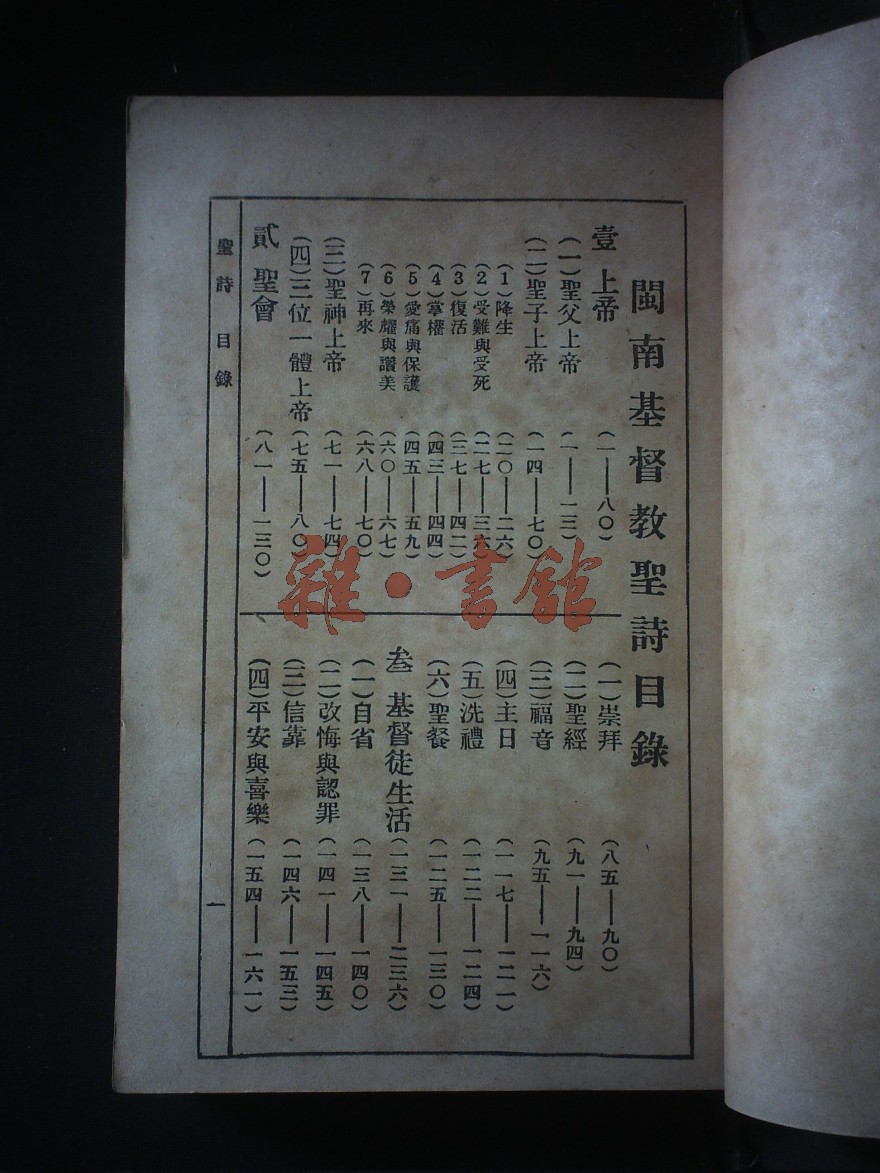 閩南基督教聖詩目錄
壹 上帝 (一——八〇)
(一)聖父上帝 (一——一三)
(二)聖子上帝 (一四——七〇)
(1)降生 (二〇——二六)
(2)受難與受死 (二七——三六)
(3)復活 (三七——四二)
(4)掌權 (四三——四四)
(5)愛痛與保護 (四五——五九)
(6)榮耀與讚美 (六〇——六七)
(7)再來 (六八——七〇)
(三)聖神上帝 (七一——七四)
(四)三位一體上帝 (七五——八〇)
貳 聖會 (八一——一三〇)
(一)崇拜 (八五——九〇)
(二)聖經 (九一——九四)
(三)福音 (九五——一一六)
(四)主日 (一一七——一二一)
(五)洗禮 (一二二——一二四)
(六)聖餐 (一二五——一三〇)
叁 基督徒生活 (一三一——二三六)
(一)自省 (一三八——一四〇)
(二)改悔與認罪 (一四一——一四五)
(三)信靠 (一四六——一五三)
(四)平安與喜樂 (一五四——一六一)
聖詩 目錄
一
雜·書館